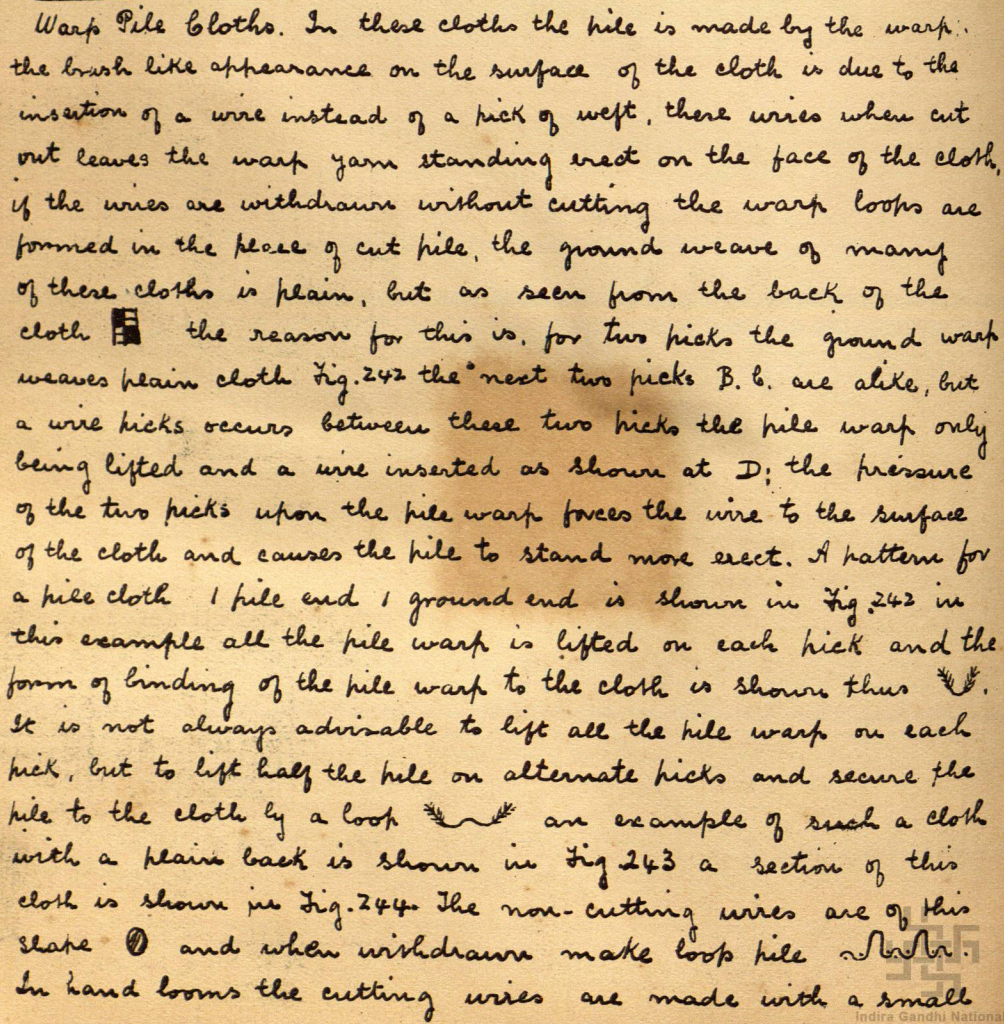 Warp Pile Cloths. In these cloths the pile is made by the warp.
the brush like appearance on the surface of the cloth is due to the
insertion of a wire instead of a pick of weft, these wires when cut
out leaves the warp yarn standing erect on the face of the cloth,
if the wires are withdrawn without cutting the warp loops are
formed in the place of cut pile, the ground weave of many
of these cloths is plain, but as seen from the back of the
cloth the reason for this is, for two picks the ground warp
weaves plain cloth Fig. 242 the next two picks B. C. are alike, but
a wire picks occurs between these two picks the pile warp only
being lifted and a wire inserted as shown at D; the pressure
of the two picks upon the pile warp forces the wire to the surface
of the cloth and causes the pile to stand more erect. A pattern for
a pile cloth 1 pile end 1 ground end is shown in Fig. 242 in
this example all the pile warp is lifted on each pick and the
form of binding of the pile warp to the cloth is shown thus .
It is not always advisable to lift all the pile warp on each
pick, but to lift half the pile on alternate picks and secure the
pile to the cloth by a loop an example of such a cloth
with a plain back is shown in Fig 243 a section of this
cloth is shown in Fig. 244. The non-cutting wires are of this
shape and when withdrawn make loop pile .
In hand looms the cutting wires are made with a small
Indira Gandhi National